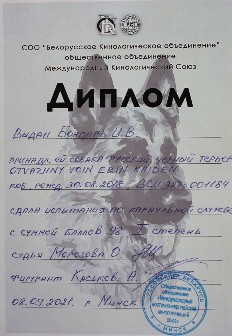 СОО "Белорусское Кинологическое объединение"
общественное объединение
Международный Кинологический Союз
Диплом
Выдан Бондарь И.В.
принадл. ей собака русский черный терьер
OTVAZNY VOIN EBIN KAIDEN
род. 30.08.2018 ВСИ 001184
сдала испытания по караульной службе
с суммой баллов 98 I степень
судья Морозова О.
фигурант Каськов А.
08.04.2021. г. Минск